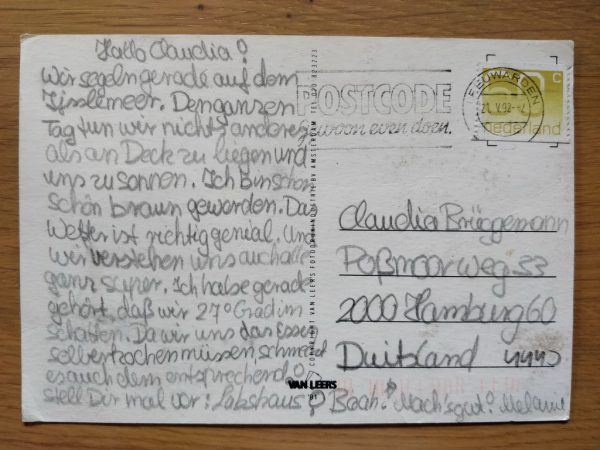 Hallo Claudia!
Wir segeln gerade auf dem
Ijsselmeer. Den ganzen
Tag tun wir nichts anderes
als an Deck zu liegen und
uns zu sonnen. Ich bin schon
schön braun geworden. Das
Wetter ist richtig genial. Und
wir verstehen uns auch alle
ganz super. Ich habe gerade
gehört, daß wir 27° Grad im
Schatten. Da wir uns das Essen
selbst kochen müssen schmeckt
es auch dem entsprechend!
Stell Dir mal vor: Labskaus! Boah! Mach's gut! Melanie
COPYRIGHT VAN LEERS FOTODRUKINDUSTRIE BV AMSTERDAM TEL 020 823723
VAN LEERS
91
POSTCODE
gewoon even doen.
LEEUWARDEN
21.V.92
c
nederland
Claudia Brüggemann
Poßmoorweg 53
2000 Hamburg 60
Duitsland